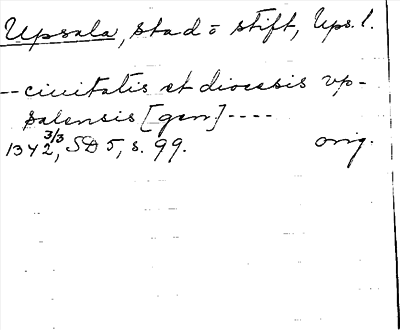 Upsala, stad o stift, Ups. l.
-- civitatis et diocesis vp-
salensis [gen] ----
1342 3/3, SD 5, s. 99. orig.